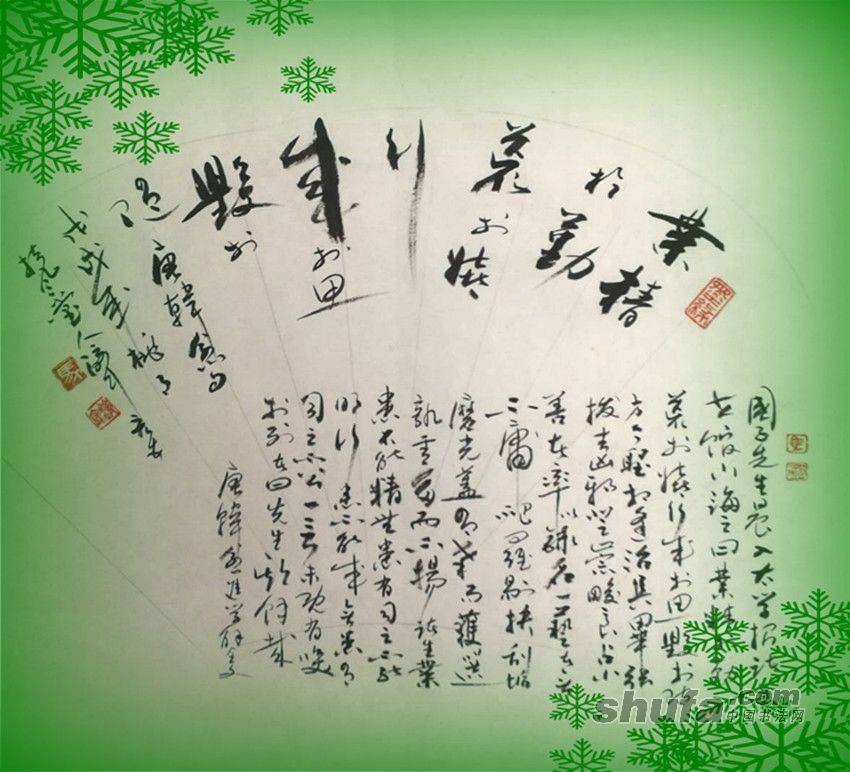 業精
於勤
荒於嬉
行
成於思
毀於
隨 唐韓愈句
戊戌年桃月
國子先生晨入太学招諸
生館下誨之曰業精於勤
荒於嬉行成於思毀於隨
方今聖相逢治具畢張
拔去凶邪登崇畯良占小
善者率以錄名一藝者無
不庸爬羅剔抉刮垢
磨光蓋有幸而獲選
孰云多而不揚諸生業
患不能精無患有司之不能
明行患不能成無患有
司之不公言未既有笑
於列者曰先生欺余哉
唐韓愈進學解
shufa.com
中国书法网